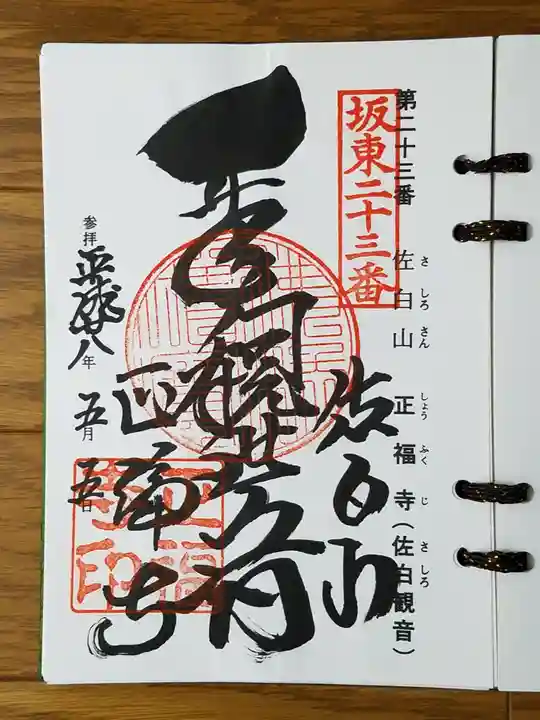 第二十三番 佐白山 正福寺(佐白観音)
さしろさん しょうふくじ さしろ
坂東二十三番
佐白山
正福寺
参拝 平成廿八年 五月 五日